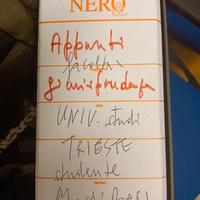 NERO
Appunti
facoltà
giurisprudenza
UNIV. studi
TRIESTE
studente